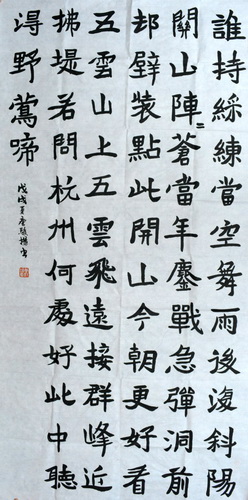 誰持綵練當空舞雨後復斜陽
關山陣〻蒼當年鏖戰急彈洞前
邨壁裝點此開山今朝更好看
五雲山上五雲飛遠接群峰近
拂堤若問杭州何處好此中聽
淂野鶯啼
戊戌